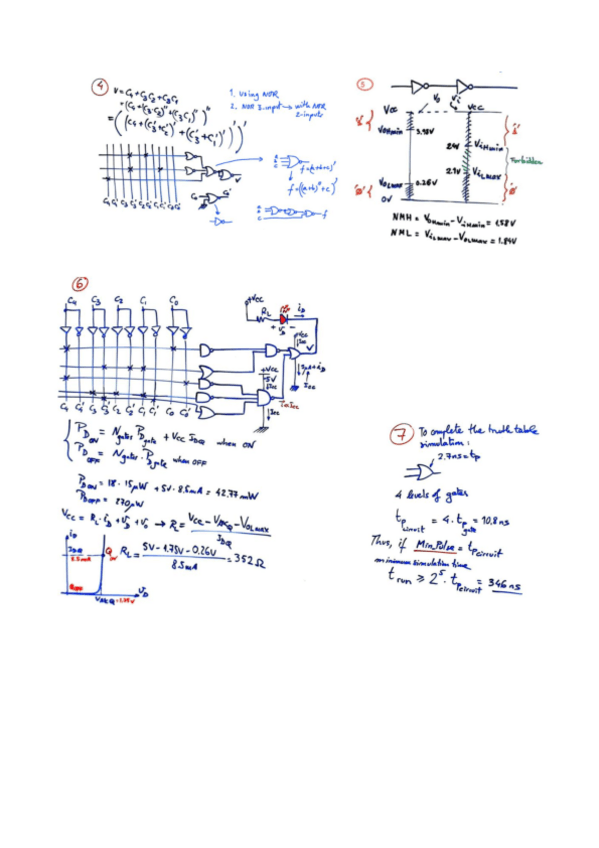 4
V = C4 + C3C2 + C3C1
= ((C4 + (C3'+C2')' + (C3'+C1')')')'
1. Using NOR
2. NOR 3-input → with NOR
2-inputs
f=(a+b+c)'
f=((a+b)''+c)'
V
C4 C4' C3 C3' C2 C2' C1 C1' C0 C0'
f
5
Vo Vi
Vcc Vcc
'1' VOHmin
ViHmin '1'
Forbidden
2.1V ViLmax
'0' VOLmax 0.26V '0'
0V
NMH = VOHmin - ViHmin = 1.58V
NML = ViLmax - VOLmax = 1.84V
6
C4 C3 C2 C1 C0
+Vcc
RL iD
+ VD -
+Vcc
Icc
V
+Vcc
5V
Icc
Icc
C4 C4' C3 C3' C2 C2' C1 C1' C0 C0'
PDON = Ngates PDgate + Vcc IDQ when ON
PDOFF = Ngates · PDgate when OFF
PDON = 18 · 15μW + 5V · 8.5mA = 42.77 mW
PDOFF = 270μW
Vcc = RL · iD + VD + Vo → RL = Vcc - VDQ - VOLmax
IDQ
RL = 5V - 1.75V - 0.26V = 352 Ω
8.5mA
iD
IDQ
8.5mA
Q
QOFF
VDQ = 1.75V
VD
7 To complete the truth table
simulation:
2.7ns = tp
4 levels of gates
tpcircuit = 4 · tpgate = 10.8 ns
Thus, if Min_Pulse = tpcircuit
minimum simulation time
trun ≥ 2^5 · tpcircuit = 346 ns